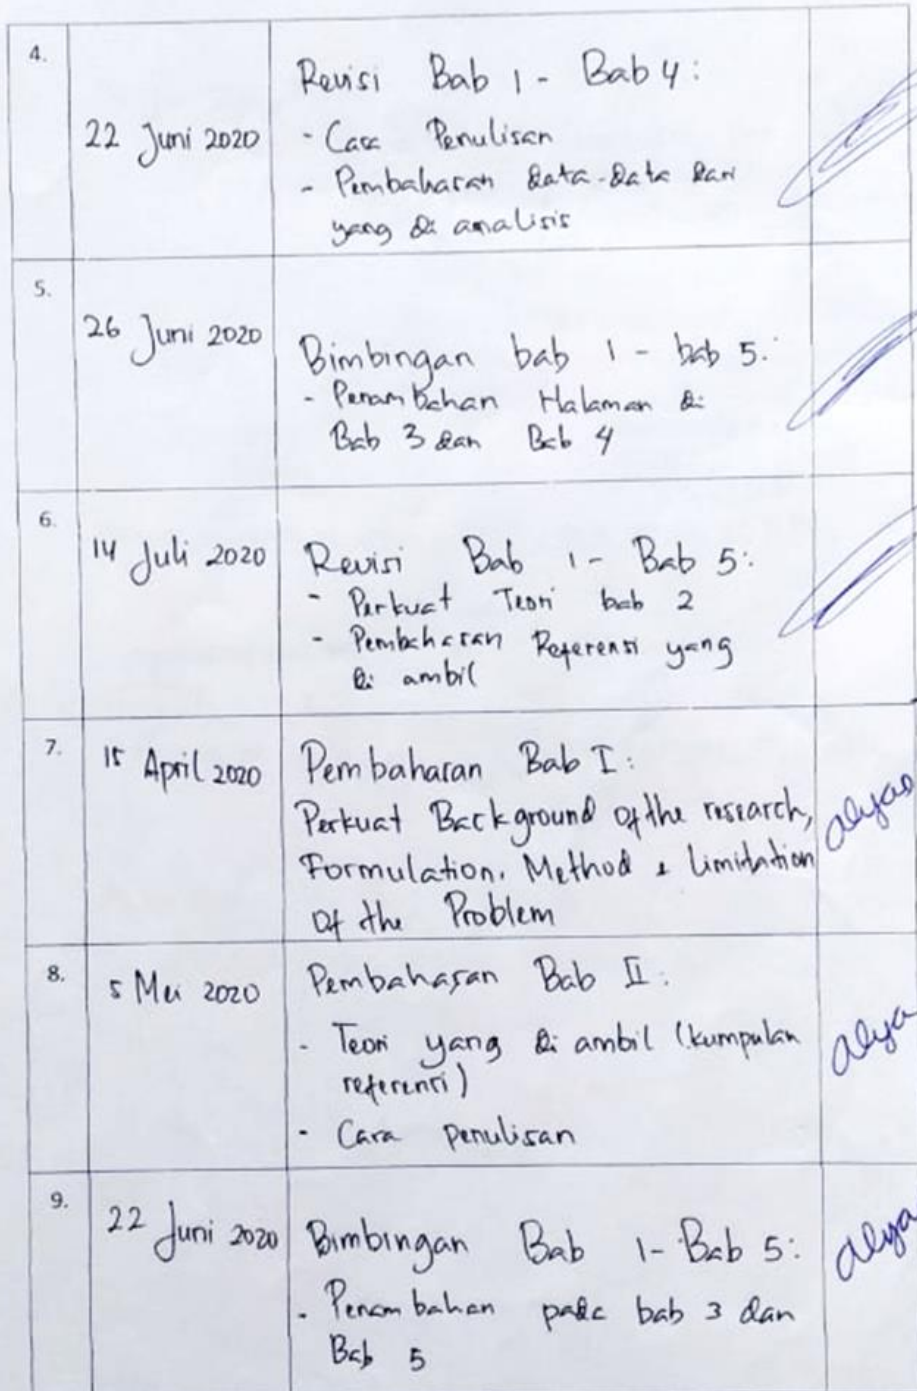 4.
22 Juni 2020
Revisi Bab 1 - Bab 4:
- Cara Penulisan
- Pembahasan data-data dari
yang di analisis
5.
26 Juni 2020
Bimbingan bab 1 - bab 5:
- Penambahan Halaman di
Bab 3 dan Bab 4
6.
14 Juli 2020
Revisi Bab 1 - Bab 5:
- Perkuat Teori bab 2
- Pembahasan Referensi yang
di ambil
7.
15 April 2020
Pembahasan Bab I:
Perkuat Background of the research,
Formulation, Method & Limitation
of the Problem
8.
5 Mei 2020
Pembahasan Bab II:
- Teori yang di ambil (kumpulan
referensi)
- Cara penulisan
alya
9.
22 Juni 2020
Bimbingan Bab 1 - Bab 5:
- Penambahan pada bab 3 dan
Bab 5
alya